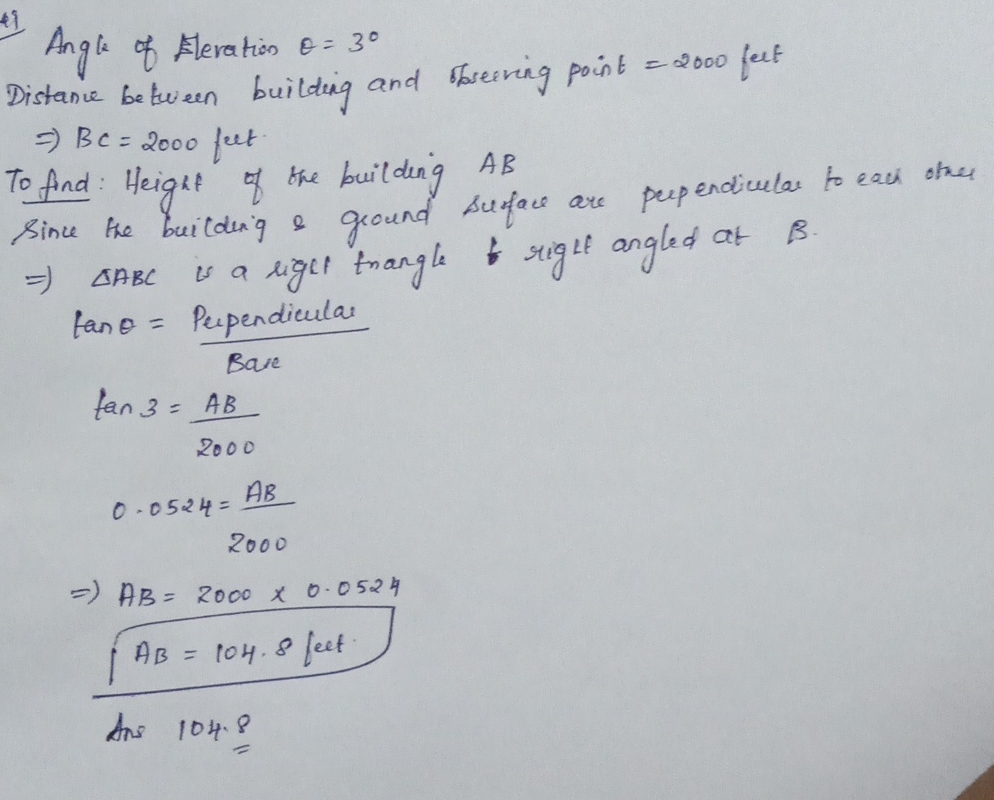 Angle of Elevation θ = 3°
Distance between building and observing point = 2000 feet
⇒ BC = 2000 feet.
To find: Height of the building AB
Since the building & ground surface are perpendicular to each other
⇒ ΔABC is a right triangle & right angled at B.
tan θ = Perpendicular
Base
tan 3 = AB
2000
0.0524 = AB
2000
⇒ AB = 2000 x 0.0524
AB = 104.8 feet.
Ans 104.8